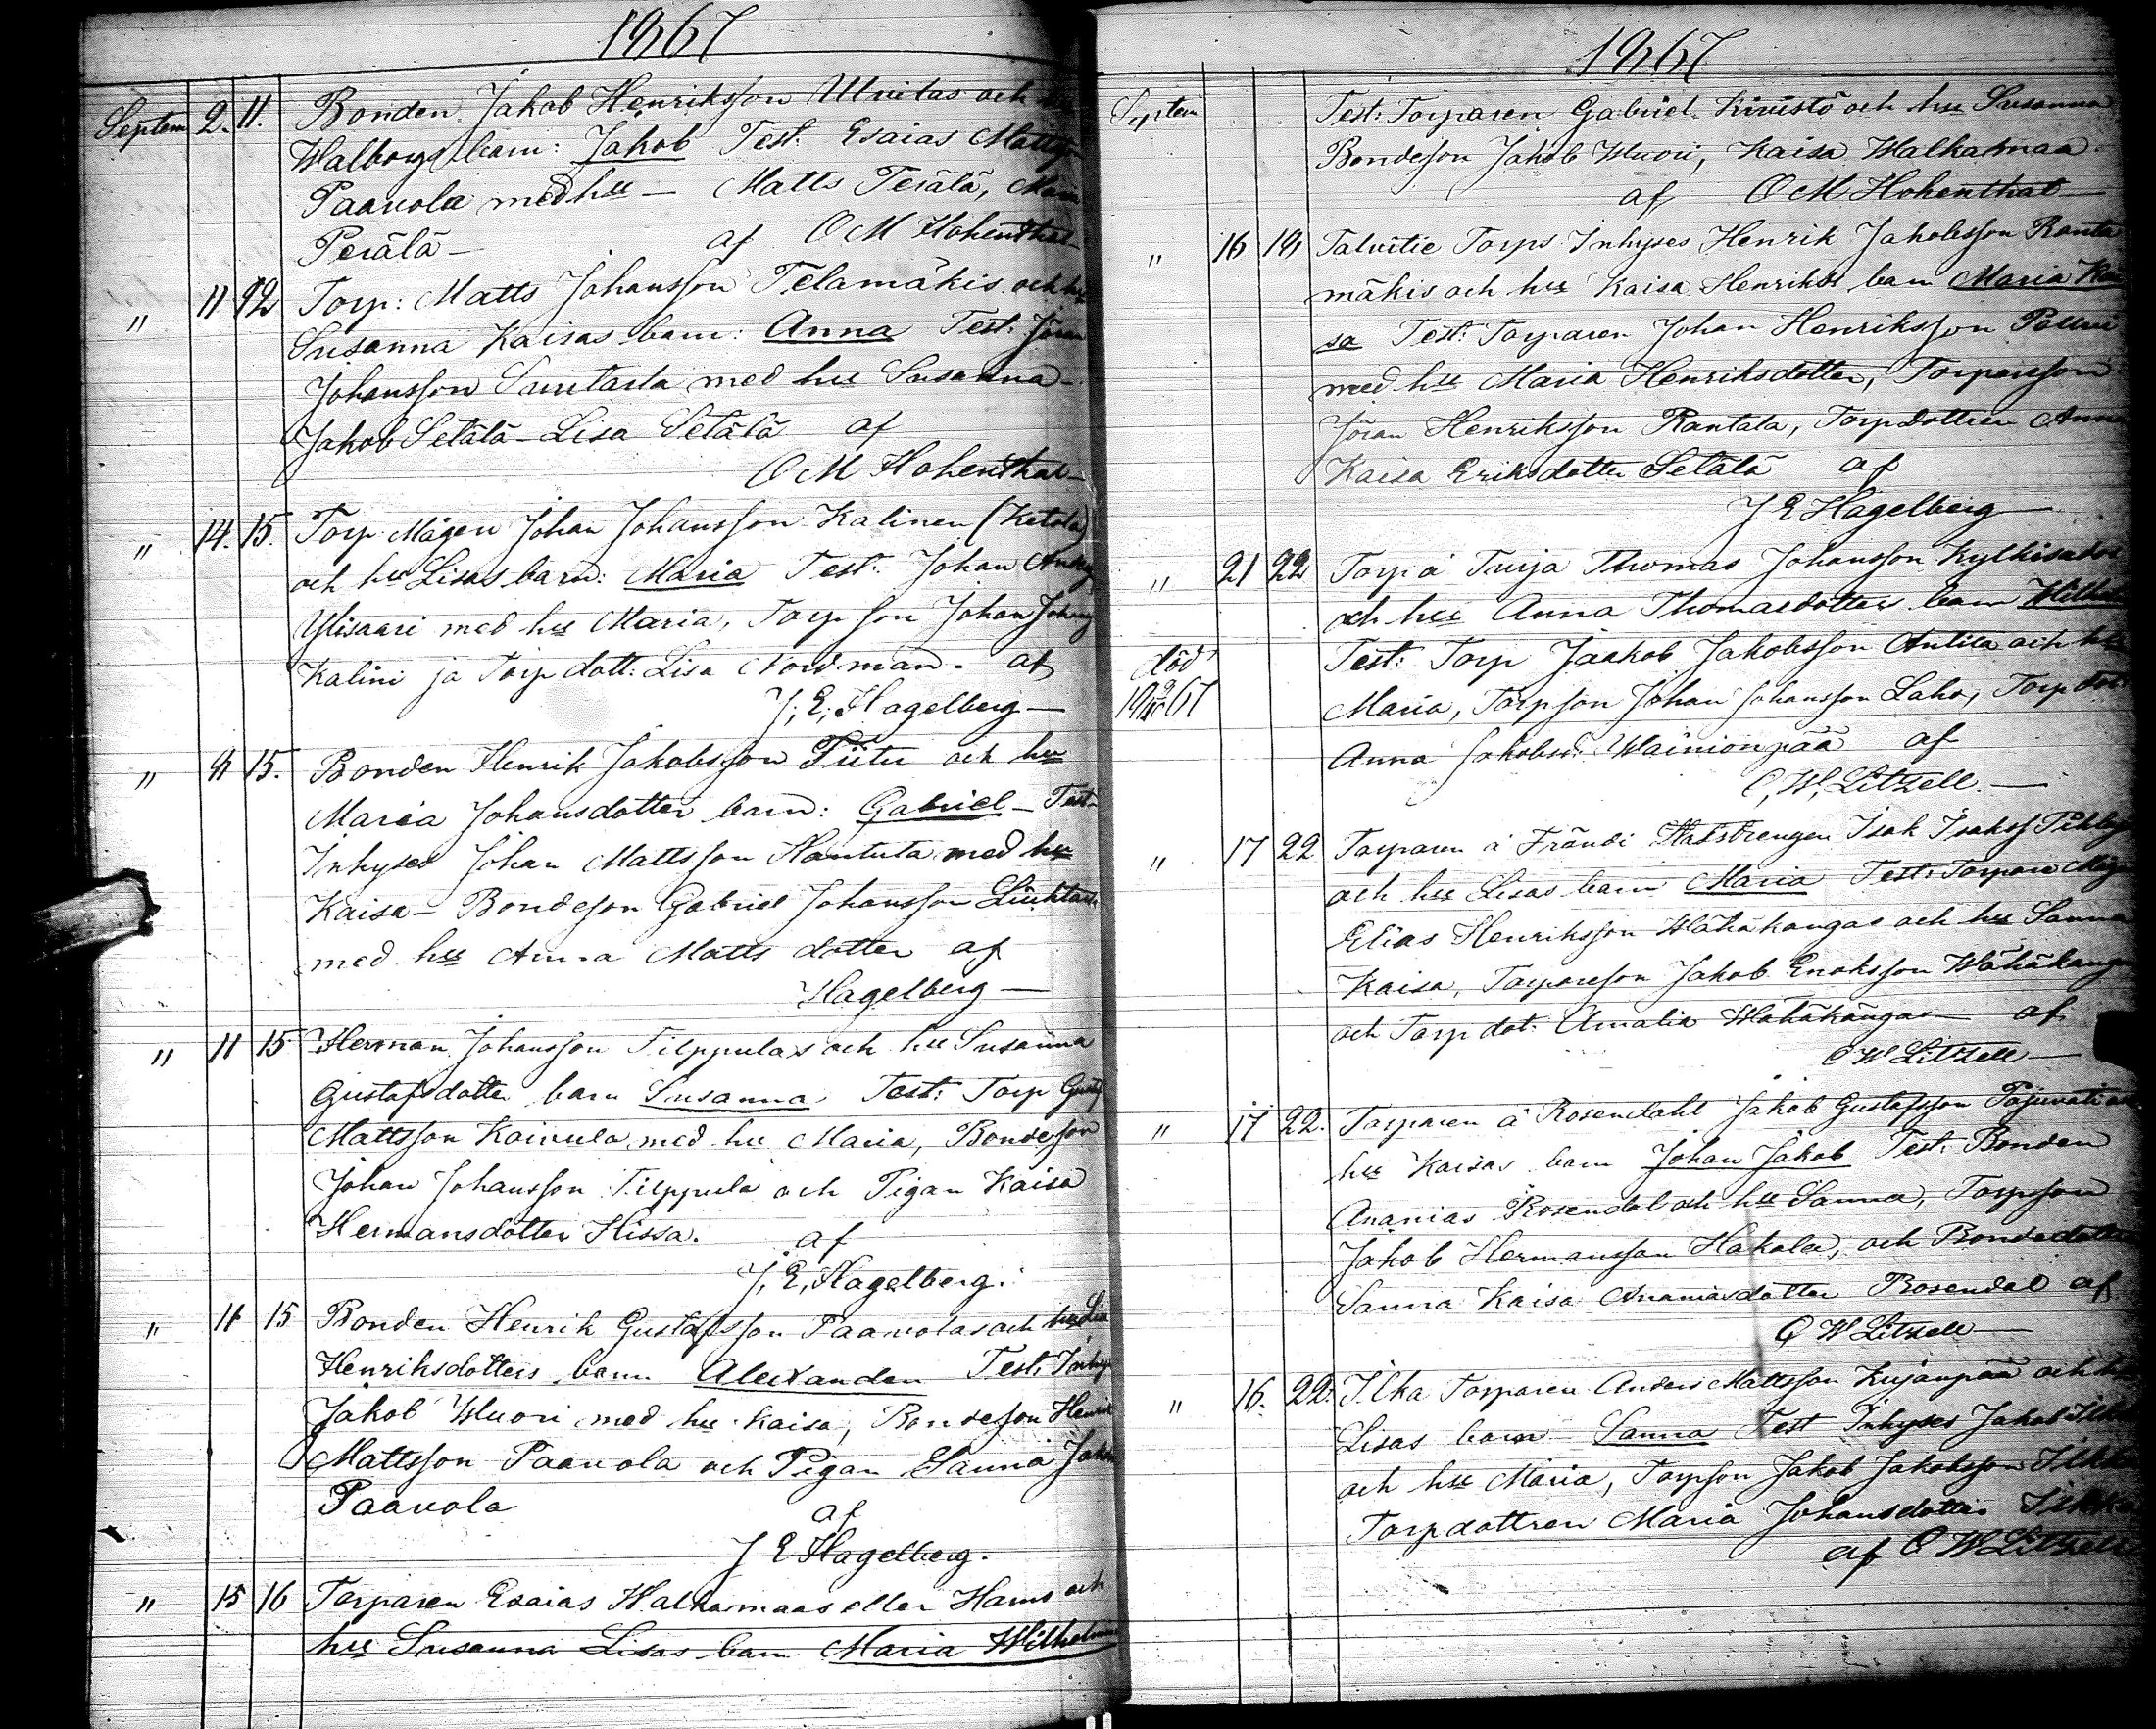 1867
Septem 2. 11. Bonden Jakob Henriksson Ulvilas och
Walborgs barn: Jakob Test. Esaias Matts
Paavola med hu — Matts Perälä,
Perälä — af O M Hohenthal
" 11 12 Torp: Matts Johansson Telamäkis och hu
Susanna Kaisas barn: Anna Test: Jöran
Johansson med hu Susanna —
Jakob Setälä — Lisa Setälä af
O M Hohenthal —
" 14. 15. Torp Mågen Johan Johansson Kalinen (Ketola)
och hu Lisas barn: Maria Test: Johan
Ylisaari med hu Maria, Torpson Johan
Kalini ja Torpdott: Lisa Nordman. af
J. E. Hagelberg —
" 9 15. Bonden Henrik Jakobsson Tiitu och hu
Maria Johansdotter barn: Gabriel — Test
Inhyses Johan Mattsson Hantula med hu
Kaisa — Bondeson Gabriel Johansson
med hu Anna Mattsdotter af
Hagelberg —
" 11 15 Herman Johansson Filppulas och hu Susanna
Gustafsdotter barn Susanna Test: Torp Gust
Mattsson Koivula med hu Maria, Bondeson
Johan Johansson Filppula och Pigan Kaisa
Hermansdotter Hissa. af
J. E. Hagelberg.
" 11 15 Bonden Henrik Gustafsson Paavolas och hu Lisa
Henriksdotters barn Alexander Test: Inhys
Jakob Wuori med hu Kaisa, Bondeson Henrik
Mattsson Paavola och Pigan Sanna
Paavola af
J E Hagelberg.
" 15 16 Torparen Esaias Halkamaas eller Harus och
hu Susanna Lisas barn Maria Wilhelmin
1867
Septem Test: Torparen Gabriel Kiviistö och hu Susanna
Bondeson Jakob Wuori, Kaisa Walkamaa
af O M Hohenthal —
" 16 19 Talvitie Torps Inhyses Henrik Jakobsson Ranta
mäkis och hu Kaisa Henriksd barn Maria Kai
sa Test: Torparen Johan Henriksson
med hu Maria Henriksdotter, Torpareson
Jöran Henriksson Rantala, Torpdottren Anna
Kaisa Eriksdotter Setälä af
J E Hagelberg —
" 21 22 Torp å Turja Thomas Johansson
och hu Anna Thomasdotter barn
död Test: Torp Jaakob Jakobsson Antila och hu
Maria, Torpson Johan Johansson Laho, Torpdot:
Anna Jakobsd: Wainionpää af
C. W. Litzell. —
" 17 22 Torparen å Frändi Isak Isaks
och hu Lisas barn Maria Test: Torpare Måg
Elias Henriksson Wähäkangas och hu Sanna
Kaisa, Torpareson Jakob Enoksson Wähäkangas
och Torpdot: Amalia Wähäkangas — af
C W Litzell —
" 17 22. Torparen å Rosendahl Jakob Gustafsson
hu Kaisas barn Johan Jakob Test: Bonden
Ananias Rosendal och hu Sanna, Torpson
Jakob Hermansson Hakala, och Bondedotter
Sanna Kaisa Ananiasdotter Rosendal af
C W Litzell —
" 16. 22. Ilka Torparen Anders Mattsson Kujanpää och hu
Lisas barn Sanna Test Inhyses Jakob
och hu Maria, Torpson Jakob Jakobsson
Torpdottren Maria Johansdotter
af C W Litzell